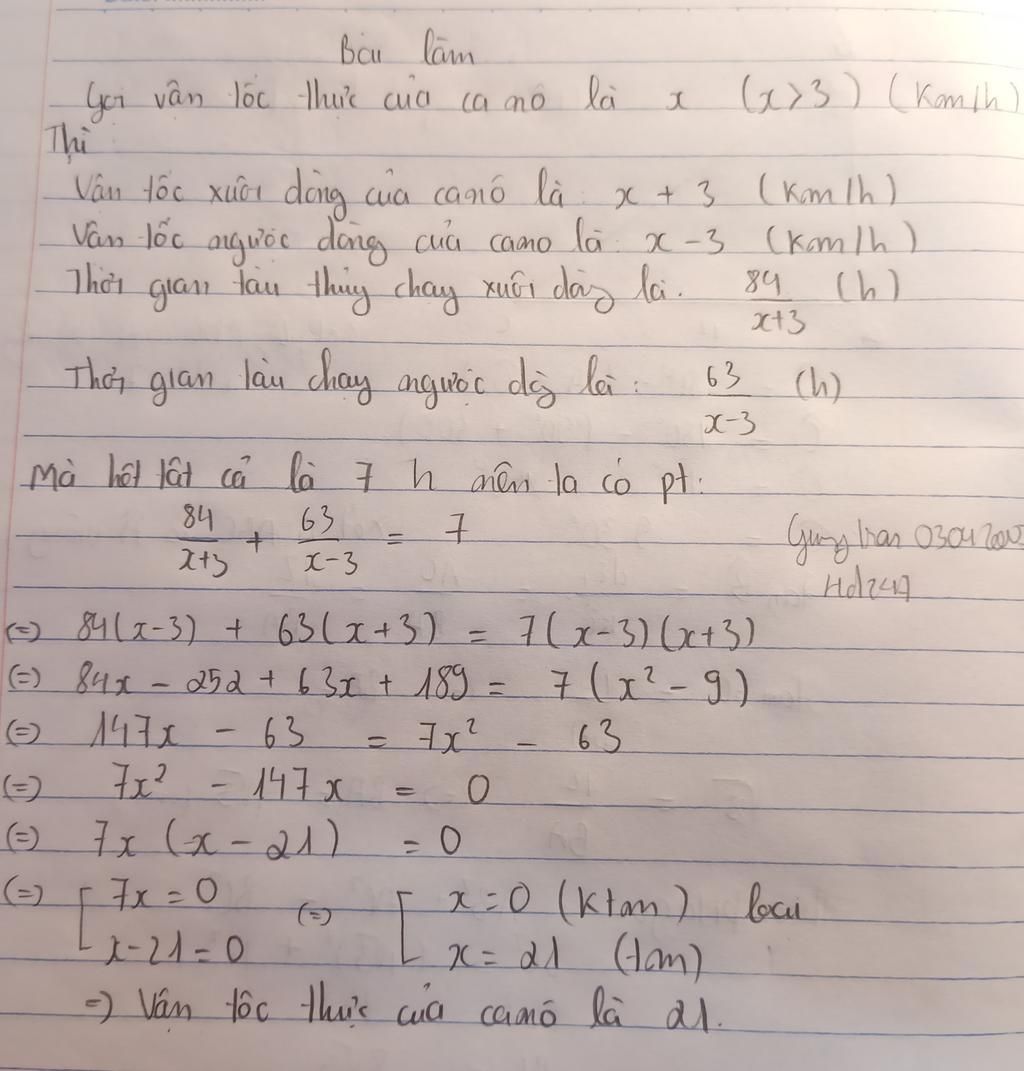 Bài làm
Gọi vận tốc thực của ca nô là x (x>3) (Km/h)
Thì
Vận tốc xuôi dòng của canô là: x + 3 (Km/h)
Vận tốc ngược dòng của cano là: x - 3 (Km/h)
Thời gian tàu thủy chạy xuôi dòng là. 84/(x+3) (h)
Thời gian tàu chạy ngược dg là: 63/(x-3) (h)
Mà hết tất cả là 7 h nên ta có pt:
84/(x+3) + 63/(x-3) = 7
03042000
Hd1247
(=) 84(x-3) + 63(x+3) = 7(x-3)(x+3)
(=) 84x - 252 + 63x + 189 = 7(x² - 9)
(=) 147x - 63 = 7x² - 63
(=) 7x² - 147x = 0
(=) 7x (x - 21) = 0
(=) [ 7x = 0 (=) [ x = 0 (Ktm) loại
x - 21 = 0 x = 21 (tm)
=) Vận tốc thực của canô là 21.